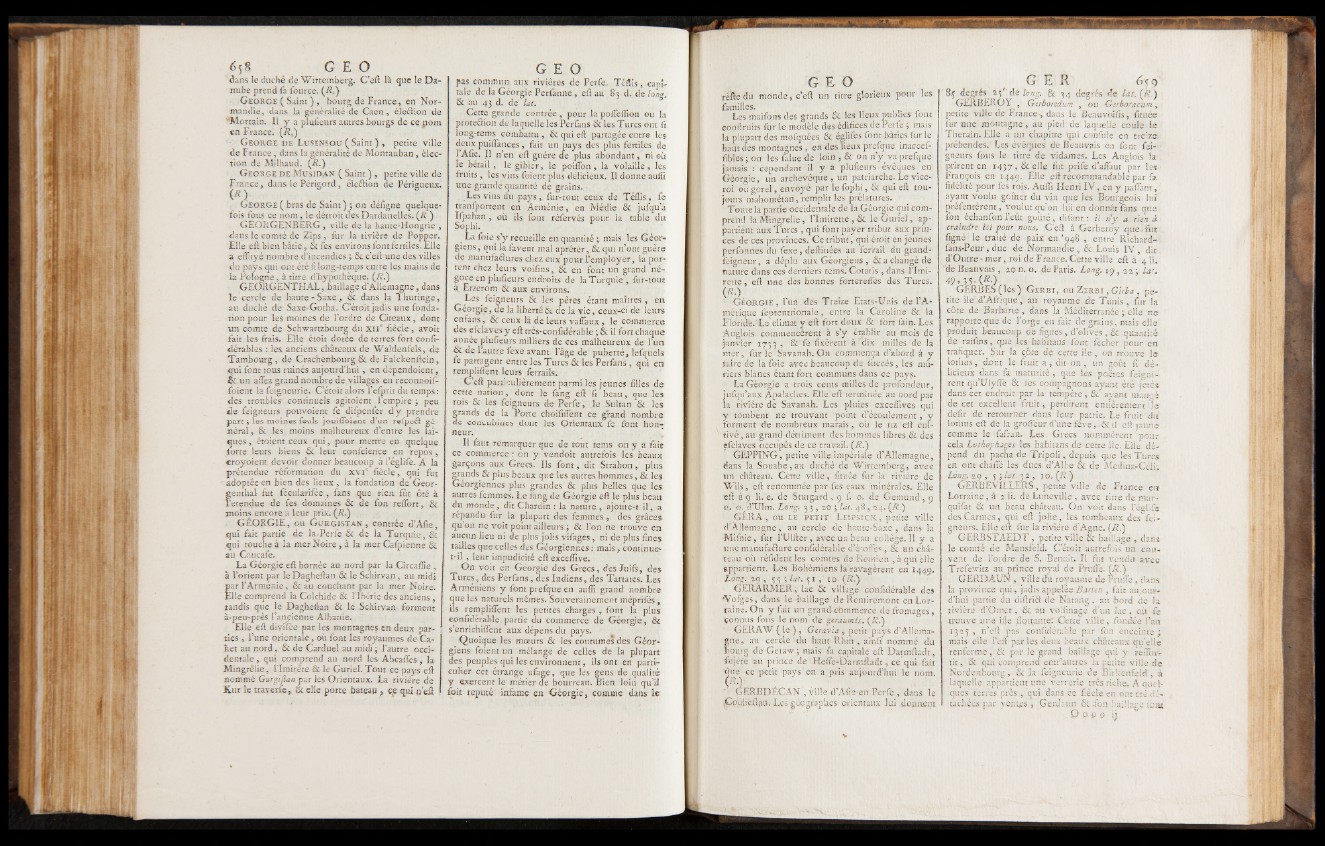 658 G E O
dans le duché de Wirtemberg. C'eſt là que le Da-
nube prend ſa ſource. (R.)
GEORGE ( Saint ), bourg de France, en Nor-
mandie, dans la généralité de Caen, élection de
Mortain. Il y a pluſieurs autres bourgs de ce nom
en France. (R.)
GEORGE DE LUSENSOU ( Saint ), petite ville
de France, dans la généralité de Montauban, élec-
tion de Milhaud. (R.)
GEORGE DE MUSIDAN ( Saint ), petite ville de
France, dans le Périgord, élection de Périgueux.
(R.)
GEORGE ( bras de Saint ); on déſigne quelque-
fois ſous ce nom, le détroit des Dardanelles. (R.)
GEORGENBERG, ville de la haute-Hongrie,
dans le comté de Zips, ſur la rivière de Popper.
Elle eſt bien bâtie, & ſes environs ſont fertiles. Elle
a eſſuyé nombre d'incendies; & c'eſt une des villes
du pays qui ont été ſi long-temps entre les mains de
la Pologne, à titre d'hypothèque. (R.)
GEORGENTHAL, bailliage d'Allemagne, dans
le cercle de haute-Saxe, & dans la Thuringe,
au duché de Saxe-Gotha. C'étoit jadis une fonda-
tion pour les moines de l'ordre de Cîteaux, dont
un comte de Schwartzbourg du XIIe ſiècle, avoit
fait les frais. Elle étoit dotée de terres fort conſi-
dérables : les anciens châteaux de Waldenfels, de
Tambourg, de Crachenbourg & de Falckenſtein,
qui ſont tous ruinés aujourd'hui, en dépendoient,
& un aſſez grand nombre de villages en reconnoiſ-
ſoient la ſeigneurie. C'étoit alors l'eſprit du temps :
des troubles continuels agitoient l'empire; peu
de ſeigneurs pouvoient ſe diſpenſer d'y prendre
part; les moines ſeuls jouiſſoient d'un reſpect gé-
néral, & les moins malheureux d'entre les laï-
ques, étoient ceux qui, pour mettre en quelque
ſorte leurs biens & leur conſcience en repos,
croyoient devoir donner beaucoup à l'égliſe. A la
prétendue réformation du XVIe ſiècle, qui fut
adoptée en bien des lieux, la fondation de Geor-
genthal fut ſéculariſée, ſans que rien fût ôté à
l'étendue de ſes domaines & de ſon reſſort, &
moins encore à leur prix. (R.)
GÉORGIE, ou GURGISTAN, contrée d'Aſie,
qui fait partie de la Perſe & de la Turquie, &
qui touche à la mer Noire, à la mer Caſpienne &
au Caucaſe.
La Géorgie eſt bornée au nord par la Circaſſie,
à l'orient par le Dagheſtan & le Schirvan, au midi
par l'Arménie, & au couchant par la mer Noire.
Elle comprend la Colchide & l'Ibérie des anciens,
tandis que le Dagheſtan & le Schirvan forment
à-peu-près l'ancienne Albanie.
Elle eſt diviſée par les montagnes en deux par-
ties, l'une orientale, où ſont les royaumes de Ca-
ket au nord, & de Carduel au midi; l'autre occi-
dentale, qui comprend au nord les Abcaſſes, la
Mingrélie, l'Imirète & le Guriel. Tout ce pays eſt
nommé Gurgiſtan par les Orientaux. La rivière de
Kur le traverſe, & elle porte bateau, ce qui n'eſt
G E O
pas commun aux rivières de Perſe. Téflis, capi-
tale de la Géorgie Perſanne, eſt au 83 d. de long.
& au 43 d. de lat.
Cette grande contrée, pour la poſſeſſion ou la
protection de laquelle les Perſans & les Turcs ont ſi
long-tems combattu, & qui eſt partagée entre les
deux puiſſances, fait un pays des plus fertiles de
l'Aſie. Il n'en eſt guère de plus abondant, ni où
le bétail, le gibier, le poiſſon, la volaille, les
fruits, les vins ſoient plus délicieux. Il donne auſſi
une grande quantité de grains.
Les vins du pays, ſur-tout ceux de Téflis, ſe
tranſportent en Arménie, en Médie & juſqu'à
Iſpahan, où ils ſont réſervés pour la table du
Sophi.
La ſoie s'y recueille en quantité; mais les Géor-
giens, qui la ſavent mal apprêter, & qui n'ont guère
de manufactures chez eux pour l'employer, la por-
tent chez leurs voiſins, & en font un grand né-
goce en pluſieurs endroits de la Turquie, ſur-tout
à Erzerom & aux environs.
Les ſeigneurs & les pères étant maîtres, en
Géorgie, de la liberté & de la vie, ceux-ci de leurs
enfans, & ceux-là de leurs vaſſaux, le commerce
des eſclaves y eſt très-conſidérable; & il ſort chaque
année pluſieurs milliers de ces malheureux de l'un
& de l'autre ſexe avant l'âge de puberté, leſquels
ſe partagent entre les Turcs & les Perſans, qui en
rempliſſent leurs ſerrails.
C'eſt particulièrement parmi les jeunes filles de
cette nation, dont le ſang eſt ſi beau, que les
rois & les ſeigneurs de Perſe, le Sultan & les
grands de la Porte choiſiſſent ce grand nombre
de concubines dont les Orientaux ſe font hon-
neur.
Il faut remarquer que de tout tems on y a fait
ce commerce : on y vendoit autrefois les beaux
garçons aux Grecs. Ils ſont, dit Strabon, plus
grands & plus beaux que les autres hommes, & les
Géorgiennes plus grandes & plus belles que les
autres femmes. Le ſang de Géorgie eſt le plus beau
du monde, dit Chardin : la nature, ajoute-t-il, a
répandu ſur la plupart des femmes, des grâces
qu'on ne voit point ailleurs; & l'on ne trouve en
aucun lieu ni de plus jolis viſages, ni de plus fines
tailles que celles des Géorgiennes : mais, continue-
t-il, leur impudicité eſt exceſſive.
On voit en Géorgie des Grecs, des Juifs, des
Turcs, des Perſans, des Indiens, des Tartares. Les
Arméniens y ſont preſque en auſſi grand nombre
que les naturels mêmes. Souverainement mépriſés,
ils rempliſſent les petites charges, font la plus
conſidérable partie du commerce de Géorgie, &
s'enrichiſſent aux dépens du pays.
Quoique les mœurs & les coutumes des Géor-
giens ſoient un mélange de celles de la plupart
des peuples qui les environnent, ils ont en parti-
culier cet étrange uſage, que les gens de qualité
y exercent le métier de bourreau. Bien loin qu'il
ſoit réputé infame en Géorgie, comme dans le
G E O
reſte du monde, c'eſt un titre glorieux pour les
familles.
Les maiſons des grands & les lieux publics ſont
conſtruits ſur le modèle des édifices de Perſe; mais
la plupart des moſquées & égliſes ſont bâties ſur le
haut des montagnes, en des lieux preſque inacceſ-
ſibles; on les ſalue de loin, & on n'y va preſque
jamais : cependant il y a pluſieurs évêques en
Géorgie, un archevêque, un patriarche. Le vice-
roi ou gorel, envoyé par le ſophi, & qui eſt tou-
jours mahométan, remplit les prélatures.
Toute la partie occidentale de la Géorgie qui com-
prend la Mingrelie, l'Imirette, & le Guriel, ap-
partient aux Turcs, qui font payer tribut aux prin-
ces de ces provinces. Ce tribut, qui étoit en jeunes
perſonnes du ſexe, deſtinées au ſerrail du grand-
ſeigneur, a déplu aux Géorgiens, & a changé de
nature dans ces derniers tems. Cotatis, dans l'Imi-
rette, eſt une des bonnes fortereſſes des Turcs.
(R.)
GÉORGIE, l'un des Treize Etats-Unis de l'A-
mérique ſeptentrionale, entre la Caroline & la
Floride. Le climat y eſt fort doux & fort ſain. Les
Anglois commencèrent à s'y établir au mois de
janvier 1733, & ſe fixèrent à dix milles de la
mer, ſur le Savanah. On commença d'abord à y
faire de la ſoie avec beaucoup de ſuccès, les mû-
riers blancs étant fort communs dans ce pays.
La Géorgie a trois cents milles de profondeur,
juſqu'aux Apalaches. Elle eſt terminée au nord par
la rivière de Savanah. Les pluies exceſſives qui
y tombent ne trouvant point d'écoulement, y
forment de nombreux marais, où le riz eſt cul-
tivé, au grand détriment des hommes libres & des
eſclaves occupés de ce travail. (R.)
GEPPING, petite ville impériale d'Allemagne,
dans la Souabe, au duché de Wirtemberg, avec
un château. Cette ville, ſituée ſur la rivière de
Wils, eſt renommée par ſes eaux minérales. Elle
eſt à 9 li. e. de Stutgard, 9 ſ. o. de Gemund, 9
n. o. d'Ulm. Long. 35, 20; lat. 48, 24. (R.)
GERA, ou LE PETIT LEIPSICK, petite ville
d'Allemagne, au cercle de haute-Saxe, dans la
Miſnie, ſur l'Elſter, avec un beau collège. Il y a
une manufacture conſidérable d'étoffes, & un châ-
teau où réſident les comtes de Reuſſen, à qui elle
appartient. Les Bohémiens la ravagèrent en 1449.
Long. 29, 55; lat. 51, 10. (R.)
GERARMER, lac & village conſidérable des
Voſges, dans le bailliage de Remiremont en Lor-
raine. On y fait un grand commerce de fromages,
connus ſous le nom de geraumés. (R.)
GERAW ( le ), Geravia, petit pays d'Allema-
gne, au cercle du haut Rhin, ainſi nommé du
bourg de Geraw; mais ſa capitale eſt Darmſtadt,
ſujette au prince de Heſſe-Darmſtadt, ce qui fait
que ce petit pays en a pris aujourd'hui le nom.
(R.)
GERBEDÉCAN, ville d'Aſie en Perſe, dans le
Couheſtan. Les géographes orientaux lui donnent
G E R 659
85 degrés 25' de long. & 34 degrés de lat. (R.)
GERBEROY, Gerboredum, ou Gerboracum,
petite ville de France, dans le Beauvoiſis, ſituée
ſur une montagne, au pied de laquelle coule le
Therain. Elle a un chapitre qui conſiſte en treize
prébendes. Les évêques de Beauvais en ſont ſei-
gneurs ſous le titre de vidames. Les Anglois la
prirent en 1437, & elle fut priſe d'aſſaut par les
François en 1449. Elle eſt recommandable par ſa
fidélité pour ſes rois. Auſſi Henri IV, en y paſſant,
ayant voulu goûter du vin que les Bourgeois lui
préſentèrent, voulut qu'on lui en donnât ſans que
ſon échanſon l'eût goûté, diſant : il n'y a rien à
craindre ici pour nous. C'eſt à Gerberoy que fut
ſigné le traité de paix en 948, entre Richard-
ſans-Peur, duc de Normandie, & Louis IV, dit
d'Outre-mer, roi de France. Cette ville eſt à 4 li.
de Beauvais, 20 n. o. de Paris. Long. 19, 22; lat.
49, 35. (R.)
GERBES (les) GERBI, ou ZERBI, Girba, pe-
tite île d'Affrique, au royaume de Tunis, ſur la
côte de Barbarie, dans la Méditerranée; elle ne
rapporte que de l'orge en fait de grains, mais elle
produit beaucoup de figues, d'olives, & quantité
de raiſins, que les habitans font ſécher pour en
trafiquer. Sur la côte de cette île, on trouve le
lothus, dont le fruit a, dit-on, un goût ſi dé-
licieux dans ſa maturité, que les poètes feigni-
rent qu'Ulyſſe & ſes compagnons ayant été jetés
dans cet endroit par la tempête, & ayant mangé
de cet excellent fruit, perdirent entièrement le
deſir de retourner dans leur patrie. Le fruit du
lothus eſt de la groſſeur d'une fève, & il eſt jaune
comme le ſaffran. Les Grecs nommèrent pour
cela Lothophages les habitans de cette île. Elle dé-
pend du pacha de Tripoli, depuis que les Turcs
en ont chaſſé les ducs d'Albe & de Medina-Céli.
Long. 29, 5; lat. 32, 10. (R.)
GERBEVILLERS, petite ville de France en
Lorraine, à 2 li. de Luneville, avec titre de mar-
quiſat & un beau château. On voit dans l'égliſe
des Carmes, qui eſt jolie, les tombeaux des ſei-
gneurs. Elle eſt ſur la rivière d'Agne. (R.)
GERBSTAEDT, petite ville & bailliage, dans
le comté de Mansfeld. C'étoit autrefois un cou-
vent de l'ordre de S. Benoît. Il fut vendu avec
Trefewitz au prince royal de Pruſſe. (R.)
GERDAUN, ville du royaume de Pruſſe, dans
la province qui, jadis appelée Barten, fait aujour-
d'hui partie du diſtrict de Natang, au bord de la
rivière d'Omet, & au voiſinage d'un lac, où ſe
trouve une île flottante. Cette ville, fondée l'an
1325, n'eſt pas conſidérable par ſon enceinte;
mais elle l'eſt par les deux beaux châteaux qu'elle
renferme, & par le grand bailliage qui y reſſor-
tit, & qui comprend entr'autres la petite ville de
Nordenbourg, & la ſeigneurie de Birkenfeld, à
laquelle appartient une verrerie très riche. A quel-
ques terres près, qui dans ce ſiècle en ont été dé-
tachées par ventes, Gerdaun & ſon bailliage ſont
O o o o ij